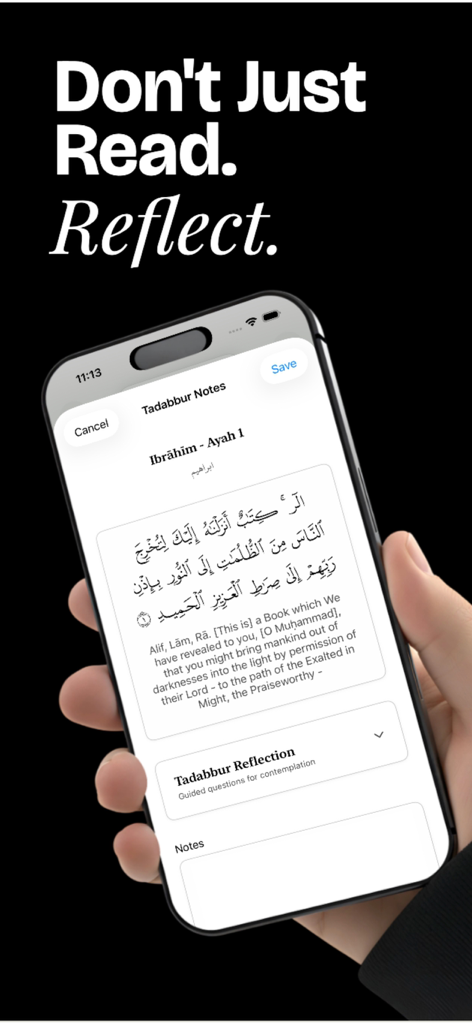 Don't Just
Read.
Reflect.
11:13
Cancel
Tadabbur Notes
Save
Ibrāhīm - Ayah 1
ابراهيم
الٓر ۚ كِتَٰبٌ أَنزَلْنَٰهُ إِلَيْكَ لِتُخْرِجَ
ٱلنَّاسَ مِنَ ٱلظُّلُمَٰتِ إِلَى ٱلنُّورِ بِإِذْنِ
رَبِّهِمْ إِلَىٰ صِرَٰطِ ٱلْعَزِيزِ ٱلْحَمِيدِ ١
Alif, Lām, Rā. [This is] a Book which We
have revealed to you, [O Muḥammad],
that you might bring mankind out of
darknesses into the light by permission of
their Lord - to the path of the Exalted in
Might, the Praiseworthy -
Tadabbur Reflection
Guided questions for contemplation
Notes